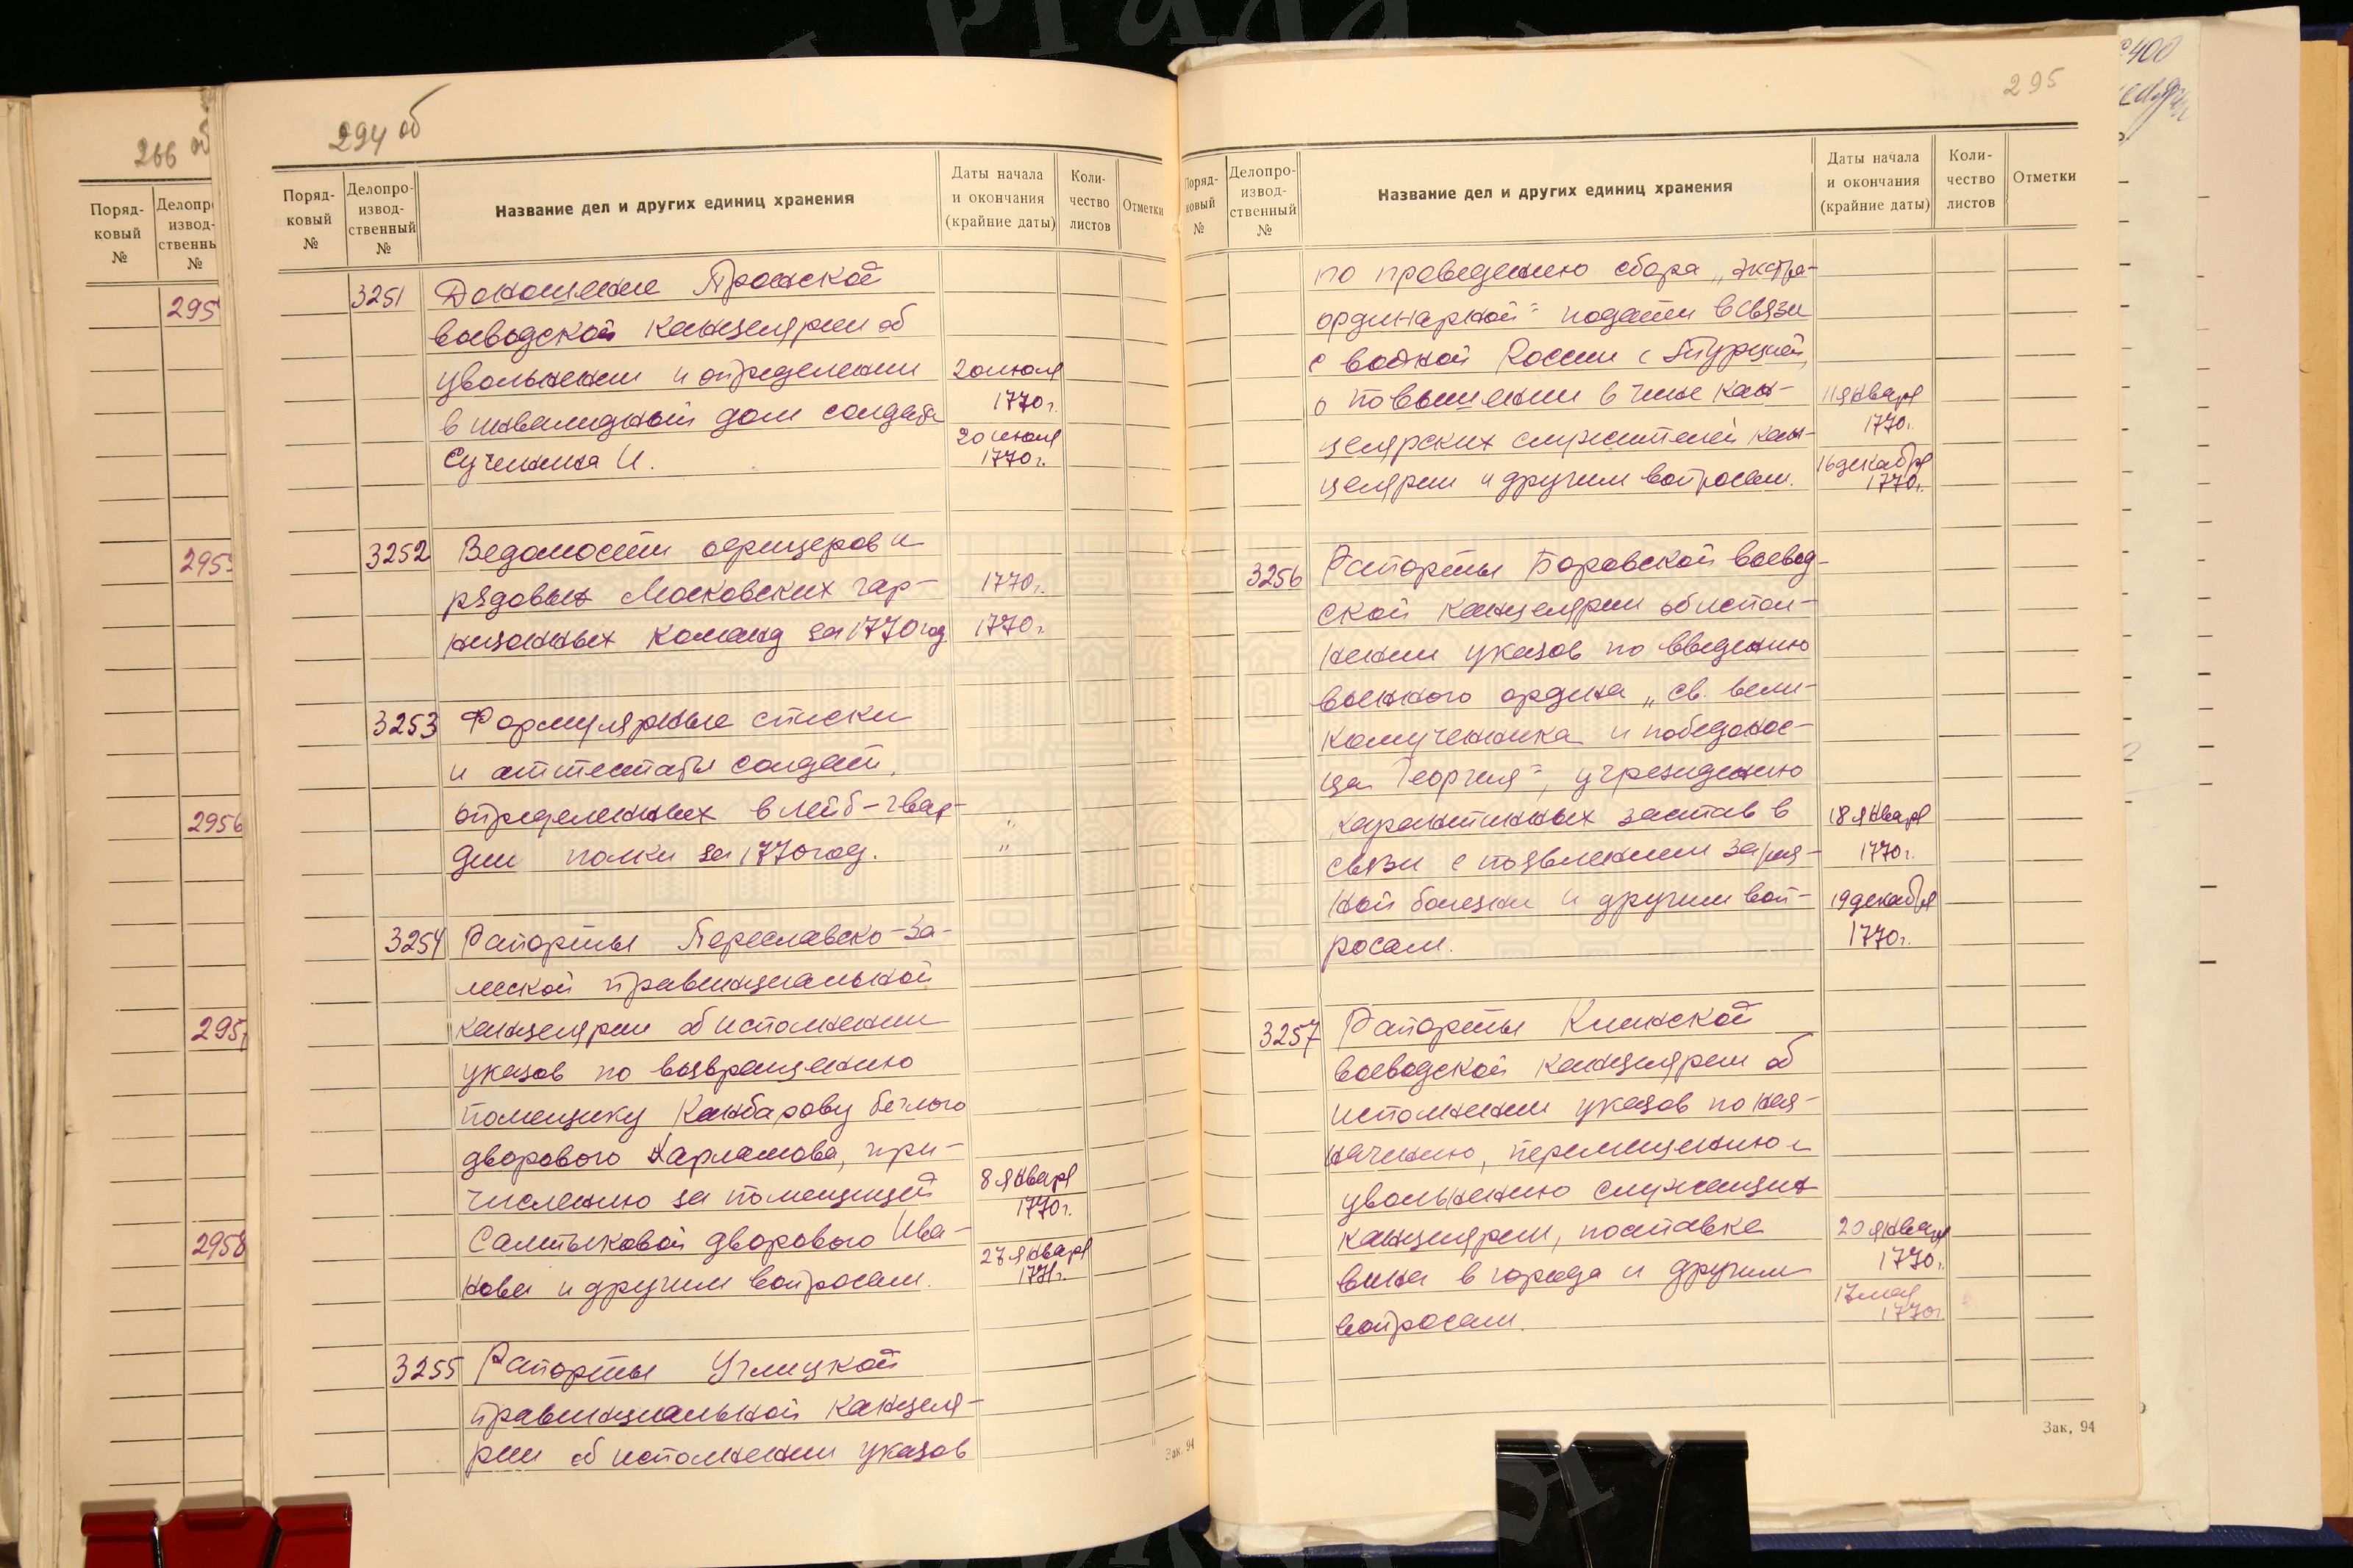 266 об
Поряд-
ковый
№
Делопр
извод-
ственны
№
295
295
2956
295
2958
294 об
Поряд-
ковый
№
Делопро-
извод-
ственный
№
Название дел и других единиц хранения
Даты начала
и окончания
(крайние даты)
Коли-
чество
листов
Отметки
3251 Доношение Пронской
воеводской канцелярии об
увольнении и определении 20 июля
в инвалидный дом солдата 1770 г.
И. 20 июля
1770 г.
3252 Ведомости офицеров и
рядовых Московских гар- 1770 г.
низонных команд за 1770 год 1770 г.
3253 Формулярные списки
и аттестаты солдат,
определенных в лейб-гвар- "
дии полки за 1770 год. "
3254 Рапорты Переславско-За-
лесской провинциальной
канцелярии об исполнении
указов по возвращению
помещику Канбарову беглого
дворового Харламова, при-
числению за помещицей 8 января
Салтыковой дворового Ива- 1770 г.
нова и другим вопросам. 27 января
1771 г.
3255 Рапорты Углицкой
провинциальной канцеля-
рии об исполнении указов
Зак. 94
295
Поряд-
ковый
№
Делопро-
извод-
ственный
№
Название дел и других единиц хранения
Даты начала
и окончания
(крайние даты)
Коли-
чество
листов
Отметки
по проведению сбора „экстра-
ординарной" подати в связи
с войной России с Турцией,
о повышении в чине кан- 11 января
целярских служителей кан- 1770 г.
целярии и другим вопросам. 16 декабря
1770 г.
3256 Рапорты Боровской воевод-
ской канцелярии об испол-
нении указов по введению
военного ордена „св. вели-
комученика и победонос-
ца Георгия", учреждению
карантинных застав в 18 января
связи с появлением зараз- 1770 г.
ной болезни и другим воп- 19 декабря
росам. 1770 г.
3257 Рапорты Клинской
воеводской канцелярии об
исполнении указов по наз-
начению, перемещению и
увольнению служащих
канцелярии, поставке 20 января
вина в города и другим 1770 г.
вопросам. 17 мая
1770 г.
Зак. 94